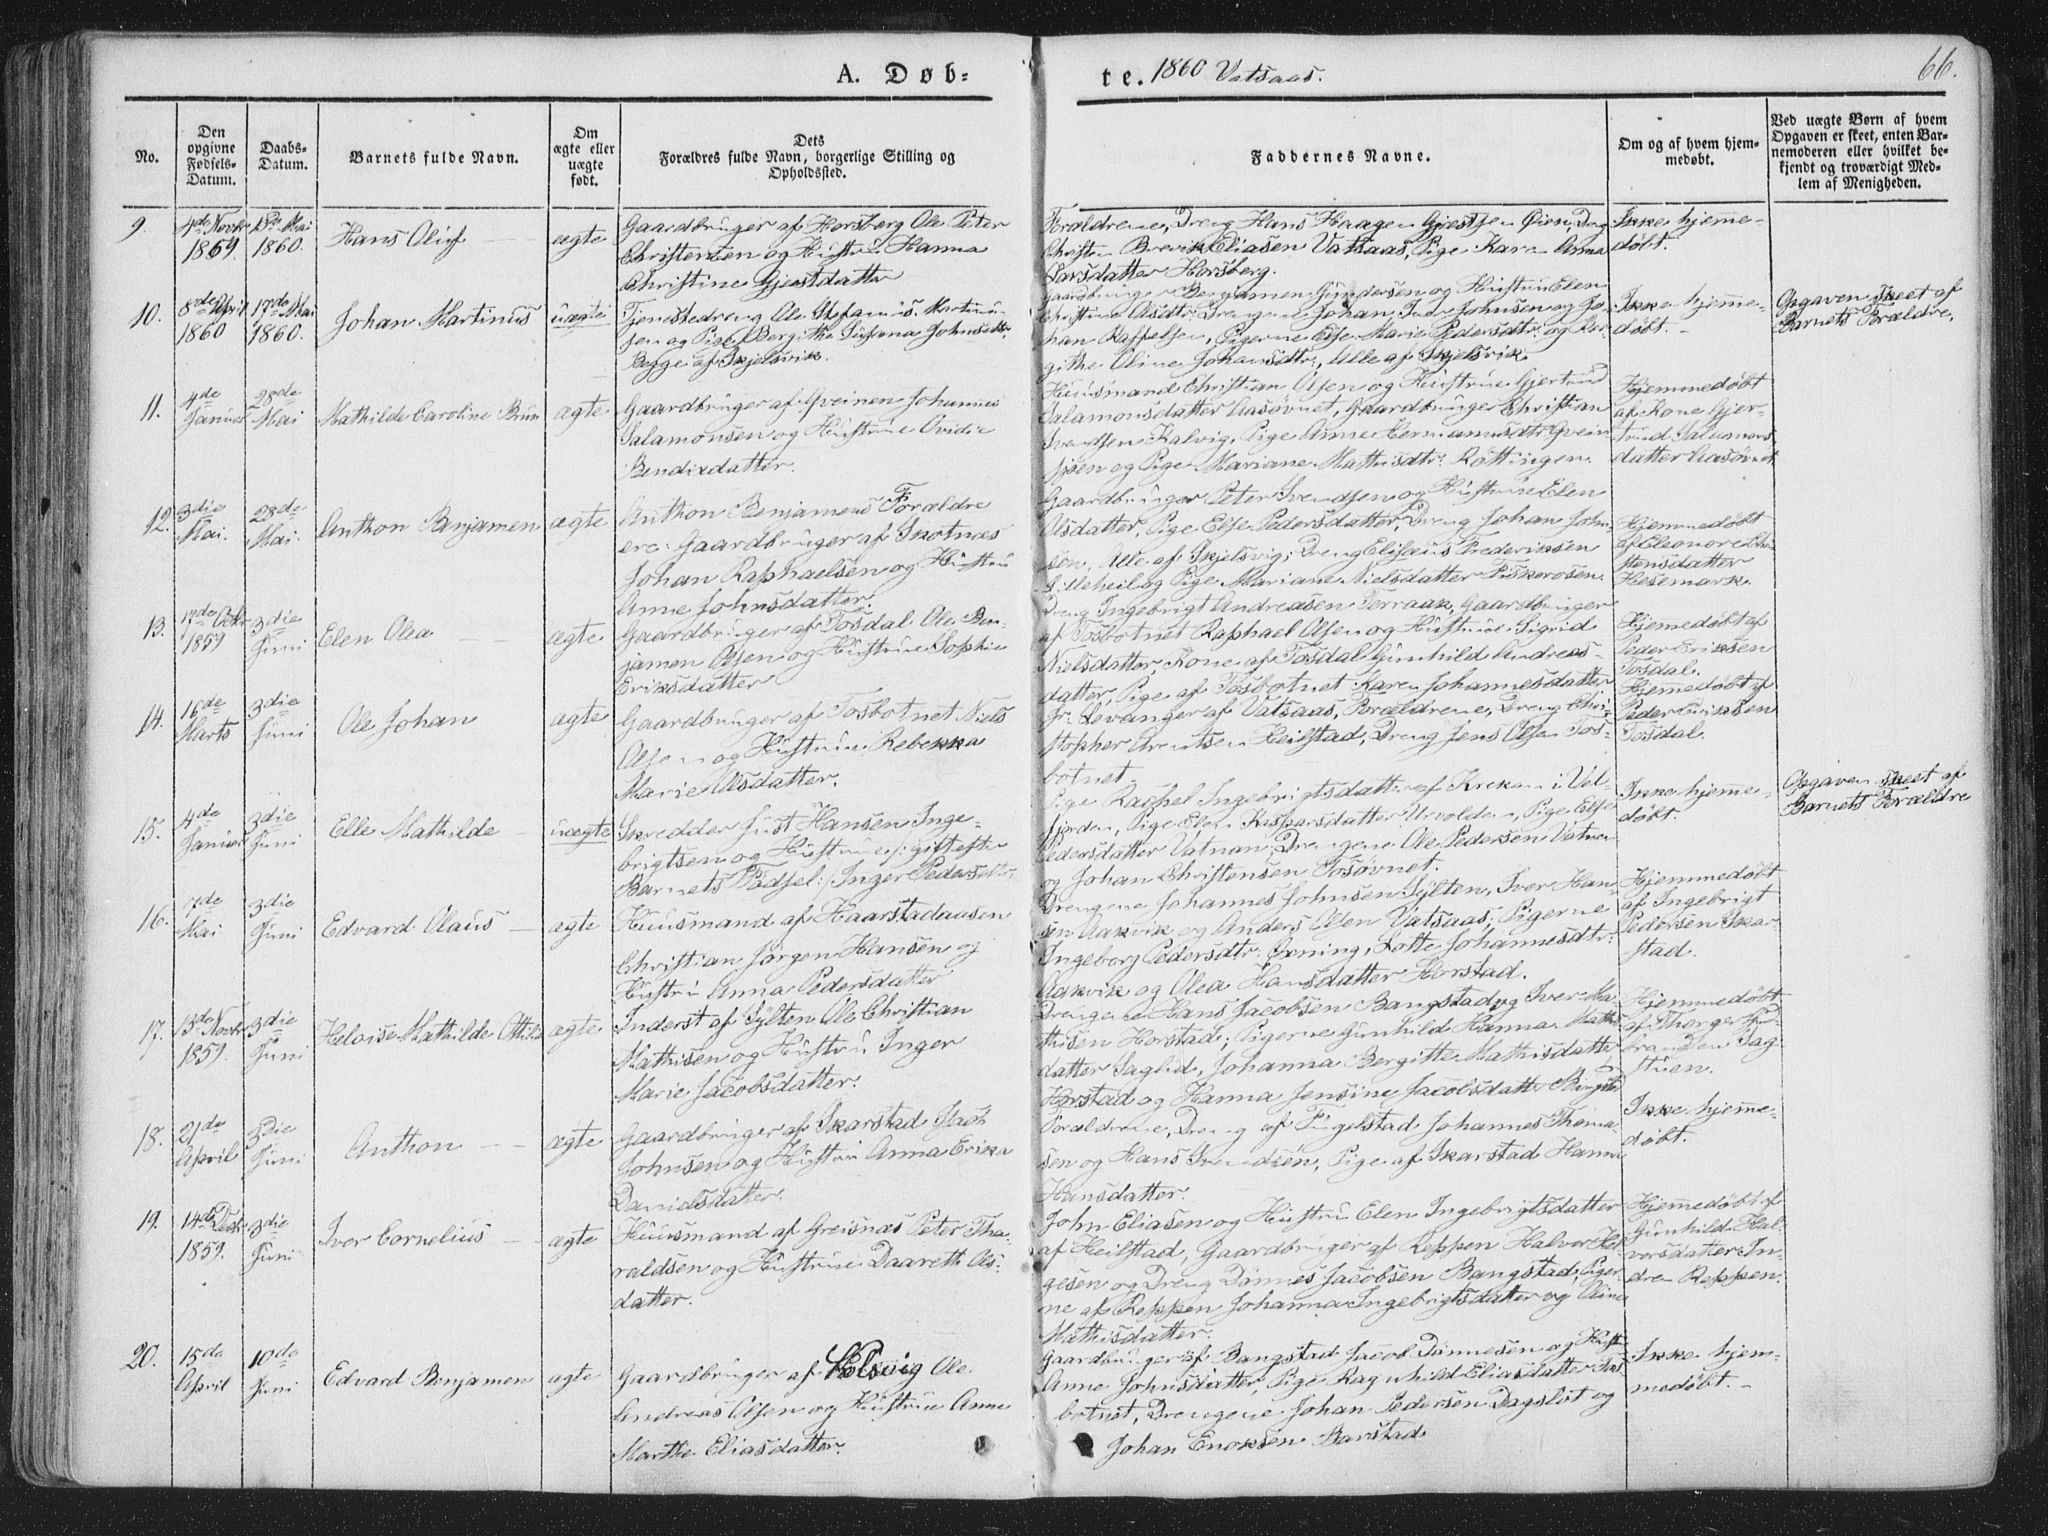 A. Døb-
te. 1860 Vatsaas.
66.
No.
Den
opgivne
Fødsels-
Datum.
Daabs-
Datum.
Barnets fulde Navn.
Om
ægte eller
uægte
født.
Dets
Forældres fulde Navn, borgerlige Stilling og
Opholdssted.
Faddernes Navne.
Om og af hvem hjem-
medøbt.
Ved uægte Børn af hvem
Opgaven er skeet, enten Bar-
nemoderen eller hvilket be-
kjendt og troværdigt Med-
lem af Menigheden.
9.
4de Novbr
1859
13de Mai
1860.
Hans Oluf
ægte
Gaardbruger af Horsberg Ole Peter
Christensen og Hustru Hanna
Christine Gjestdatter
Forældrene, Dreng Hans Haagen Gjestsen Øien, Dreng
Christen Brevik Eliasen Vatsaas, Pige Karen Anna
Larsdatter Horsberg.
Ikke hjemme-
døbt.
10.
8de April
1860
17de Mai
1860.
Johan Martinus
uægte
Tjenestedreng Ole Stefanus Martinu-
sen og Pige Bergithe Susana Johnsdtr,
Begge af Skjelsvik.
Gaardbruger Benjamen Gundersen og Hustru Elen
Christine Olsdtr; Drengene Johan, Johnsen og Jo-
han Raffelsen, Pigerne Else Marie Pedersdtr. og Ber-
githe Oline Johansdtr, Alle af Skjelsvik.
Ikke hjemme-
døbt.
Opgaven skeet af
Barnets Forældre.
11.
4de
Januar
28de
Mai
Mathilde Caroline Brun
ægte
Gaardbruger af Gveinen Johannes
Salamonsen og Hustrue Ovidie
Bendixdatter.
Huusmand Christian Olsen og Hustrue Gjertrud
Salamonsdatter Aasøvnet, Gaardbruger Christian
Svendsen Kalvig, Pige Anne Hermansdtr Gvein-
sjøen og Pige Mariane Mathisdtr. Røttingen.
Hjemmedøbt
af Kone Gjer-
trud Salamons
datter Aasøvnet
12.
3die
Mai.
28de
Mai.
Anthon Benjamen
ægte
Anthon Benjamens Forældre
ere: Gaardbruger af Skotnæs
Johan Raphaelsen og Hustru
Anne Johnsdatter.
Gaardbruger Peter Svendsen og Hustrue Elen
Olsdatter, Pige Else Pedersdatter, Dreng Johan John-
sen, Alle af Skjelsvig; Dreng Elisæus Frederiksen
Lilleheil og Pige Mariane Nielsdatter Fiskerosen.
Hjemmedøbt
af Eleonore Chri-
stensdatter
Hesemark.
13.
17de Octbr
1859
3die
Juni
Elen Olea
ægte
Gaardbruger af Tosdal Ole Ben-
jamen Olsen og Hustrue Sophie
Eriksdatter
Dreng Ingebrigt Andreasen Terraak, Gaardbruger
af Tosbotnet Raphael Olsen og Hustrue Sigrid
Nielsdatter, Kone af Tosdal Gunhild Andreas-
datter, Pige af Tosbotnet Karen Johannesdatter
Hjemmedøbt af
Peder Eriksen
Tosdal.
14.
16de
Marts
3die
Juni
Ole Johan
ægte
Gaardbruger af Tosbotnet Niels
Olsen og Hustrue Rebekka
Marie Olsdatter.
Gr: Levanger af Vatsaas, Forældrene, Dreng Chri-
stopher Arentsen Heilstad, Dreng Jens Olsen Tos-
botnet.
Hjemmedøbt af
Peder Eriksen
Tosdal.
15.
4de
Januar
3die
Juni
Elle Mathilde
uægte
Skredder Just Hansen Inge-
brigtsen og Hustrue /: gift efter
Barnets Fødsel :/ Inger Pedersdtr.
Pige Rachel Ingebrigtsdatter af Krekan i Vel-
fjorden, Pige Elen Kasparsdatter Urvolden, Pige Else
Pedersdatter Vatnan; Drengene Ole Pedersen Vatnan
og Johan Christensen Tosøvnet.
Ikke hjemme-
døbt.
Opgaven skeet af
Barnets Forældre
16.
7de
Mai
3die
Juni
Edvard Olaus
ægte
Huusmand af Haarstadaasen
Christian Jørgen Hansen og
Hustru Anna Pedersdatter
Drengene Johannes Johnsen Sylten, Iver Han-
sen Aakvik og Anders Olsen Vatsaas; Pigerne
Ingeborg Pedersdtr. Øxning, Lotte Johannesdtr:
Aakvik og Olea Hansdatter Horstad.
Hjemmedøbt
af Ingebrigt
Pedersen Skar-
stad.
17.
13de Novbr
1859.
3die
Juni
Heloise Mathilde Ottilie
ægte
Inderst af Sylten Ole Christian
Mathisen og Hustru Inger
Marie Jacobsdatter.
Drengene Hans Jacobsen Bangstad og Iver Ma-
thisen Horstad; Pigerne Gunhild Hanna Mathis
datter Saglid, Johanna Bergitte Mathisdatter
Horstad og Hanna Jensine Jacobsdatter Bangstad
Hjemmedøbt
af Thorger Gul-
brandsen Sag-
stuen.
18.
21de
April
3die
Juni
Anthon
ægte
Gaardbruger af Skarstad Isach
Johnsen og Hustru Anna Erika
Danielsdatter.
Forældrene, Dreng af Fingelstad Johannes Thoma-
sen og Hans Svendsen, Pige af Skarstad Hanna
Hansdatter.
Ikke hjemme-
døbt.
19.
14de Decbr.
1859.
3die
Juni
Iver Cornelius
ægte
Huusmand af Greisnæs Peter Tha-
raldsen og Hustrue Daareth Ols-
datter.
John Eliasen og Hustru Elen Ingebrigtsdatter
af Heilstad, Gaardbruger af Reppen Halvor Hel-
gesen og Dreng Dønnes Jacobsen Bangstad, Piger-
ne af Reppen Johanna Ingebrigtsdatter og Aine
Mathisdatter.
Hjemmedøbt af
Gunhild Hal-
vorsdatter In-
dre Reppen.
20.
15de
April
10de
Juni
Edvard Benjamen
ægte
Gaardbruger af Holsvig Ole
Andreas Olsen og Hustrue Anne
Marthe Eliasdatter.
Gaardbruger af Bangstad Jacob Tønnesen og Hust.
Anne Johnsdatter, Pige Ragnhild Eliasdatter Tos
botnet, Drengene Johan Pedersen Dagslot og
Johan Enoksen Barstad
Ikke hjem-
medøbt.